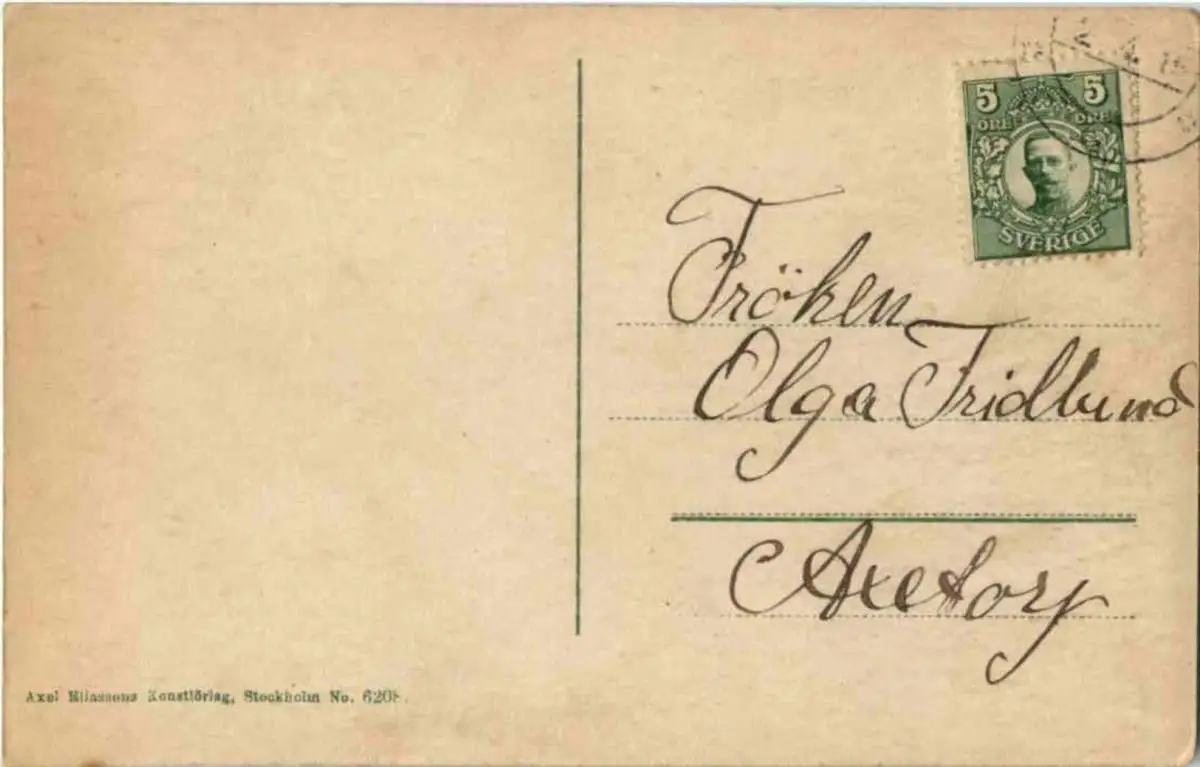 5 5
ÖRE ÖRE
SVERIGE
Fröken
Olga Fridlund
Axetorp
Axel Eliassons Konstförlag, Stockholm No. 6208.